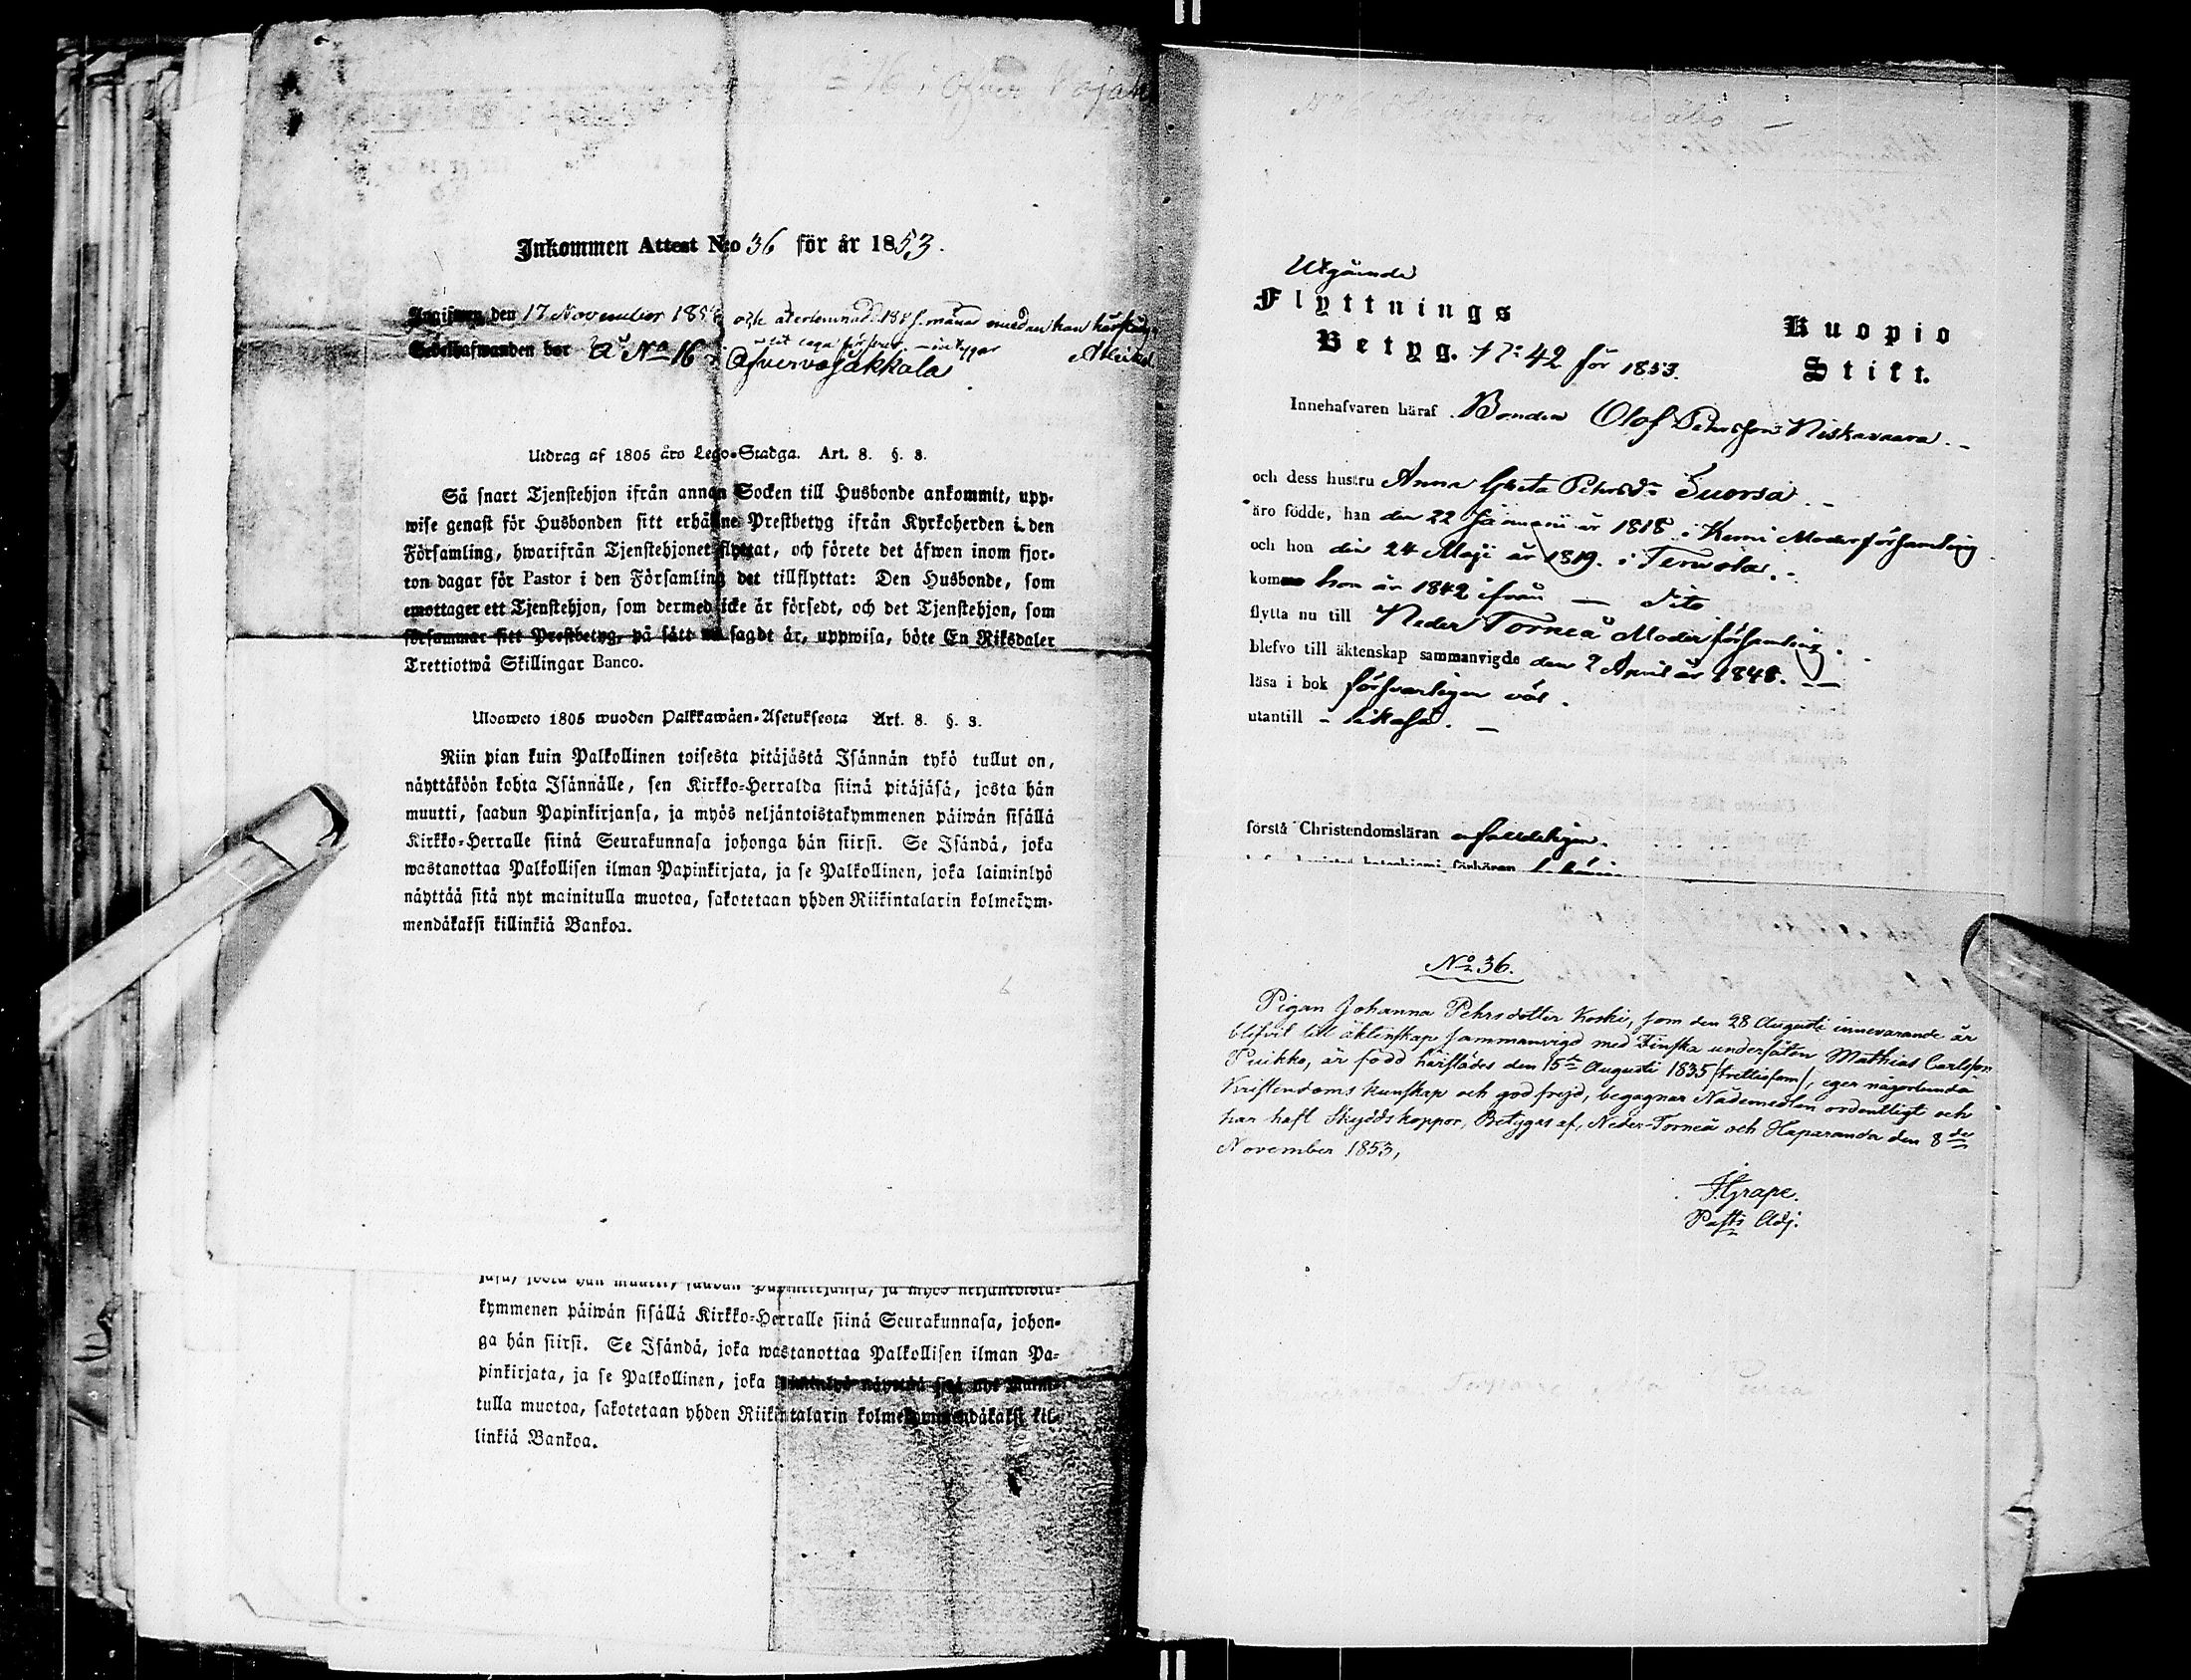 Inkommen Attest N:o 36 för år 1853.
Ingifwen den 17 November 185
Sedelhafwanden bor å No 16 i Öfvervojakkala
Utdrag af 1805 års Lego-Stadga. Art. 8. §. 8.
Så snart Tjenstehjon ifrån annan Socken till Husbonde ankommit, upp-
wise genast för Husbonden sitt erhållne Prestbetyg ifrån Kyrkoherden i den
Församling, hwarifrån Tjenstehjonet flyttat, och förete det äfwen inom fjor-
ton dagar för Pastor i den Församling det tillflyttat: Den Husbonde, som
emottager ett Tjenstehjon, som dermed icke är försedt, och det Tjenstehjon, som
försummar sitt Prestbetyg, på sätt nu sagdt är, uppwisa, böte En Riksdaler
Trettiotwå Skillingar Banco.
Ulosweto 1805 wuoden Palkkawäen-Asetuksesta Art. 8. §. 8.
Niin pian kuin Palkollinen toisesta pitäjästä Isännän tykö tullut on,
näyttäköön kohta Isännälle, sen Kirkko-Herralda siinä pitäjäsä, josta hän
muutti, saadun Papinkirjansa, ja myös neljäntoistakymmenen päiwän sisällä
Kirkko-Herralle siinä Seurakunnasa johonga hän siirsi. Se Isändä, joka
wastanottaa Palkollisen ilman Papinkirjata, ja se Palkollinen, joka laiminlyö
näyttää sitä nyt mainitulla muotoa, sakotetaan yhden Riikintalarin kolmekym-
mendäkaksi killinkiä Bankoa.
jäsä, josta hän muutti, saadun Papinkirjansa, ja myös neljäntoista-
kymmenen päiwän sisällä Kirkko-Herralle siinä Seurakunnasa, johon-
ga hän siirsi. Se Isändä, joka wastanottaa Palkollisen ilman Pa-
pinkirjata, ja se Palkollinen, joka laiminlyö näyttää sitä nyt maini-
tulla muotoa, sakotetaan yhden Riikintalarin kolmekymmendäkaksi kil-
linkiä Bankoa.
Utgående
Flyttnings
Betyg. N:o 42 för 1853.
Kuopio
Stift.
Innehafvaren häraf Bonden Olof Pehrsson Niskavaara.
och dess hustru Anna Greta Pehrsdr Suorsa
äro födde, han den 22 Januarii år 1818 i Kemi Moderförsamling
och hon den 24 Maji år 1819. i Tervola.
kom hon år 1842 ifrån — dito
flytta nu till Neder Torneå Moderförsamling.
blefvo till äktenskap sammanvigde den 2 April år 1848. —
läsa i bok försvarligen väl.
utantill - likaså. —
förstå Christendomsläran enfaldeligen.
N:o 36.
Pigan Johanna Pehrsdotter Koski, som den 28 Augusti innevarande år
blifvit till äktenskap sammanvigd med Finska undersåten Mathias Carlsson
Puikko, är född härstädes den 15de Augusti 1835 /trettiofem/, eger någorlunda
Kristendoms kunskap och god frejd, begagnar Nådemedlen ordentligt och
har haft Skyddskoppor, Betygas af, Neder-Torneå och Haparanda den 8de
November 1853,
J. Grape.
Past: Adj.